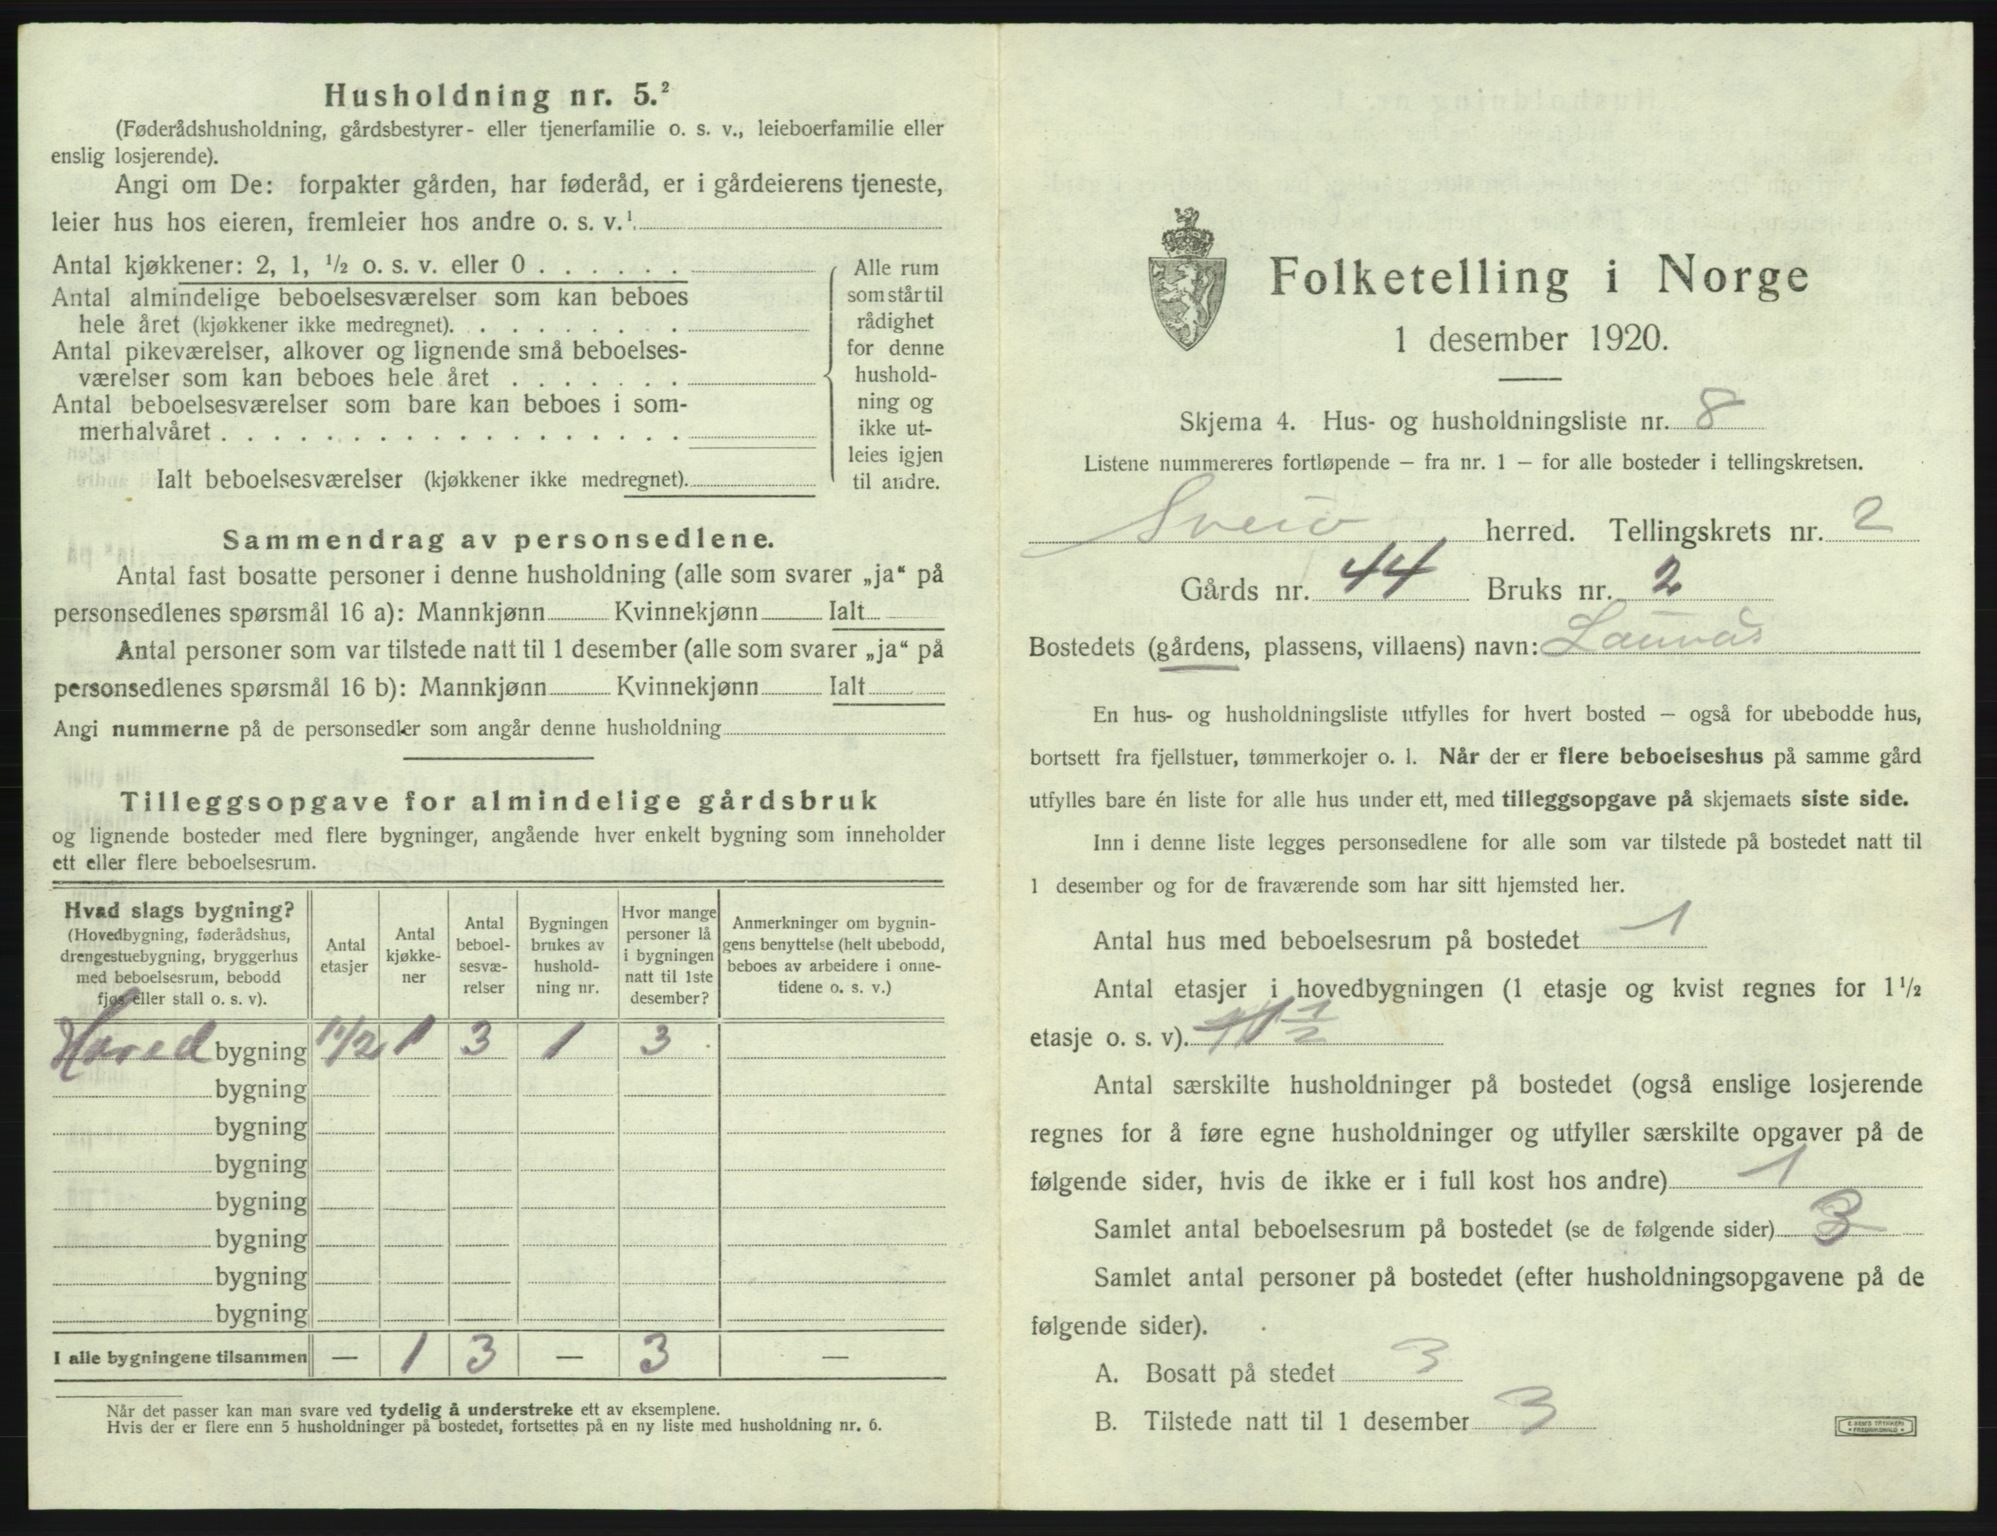 Husholdning nr. 5.²
(Føderådshusholdning, gårdsbestyrer- eller tjenerfamilie o. s. v., leieboerfamilie eller
enslig losjerende).
Angi om De: forpakter gården, har føderåd, er i gårdeierens tjeneste,
leier hus hos eieren, fremleier hos andre o. s. v.¹
Antal kjøkkener: 2, 1, ½ o. s. v. eller 0 . . . . . .
Antal almindelige beboelsesværelser som kan beboes
hele året (kjøkkener ikke medregnet). . . . . . . . .
Antal pikeværelser, alkover og lignende små beboelses-
værelser som kan beboes hele året . . . . . . .
Antal beboelsesværelser som bare kan beboes i som-
merhalvåret . . . . . . . . . . . . . . . . . .
Ialt beboelsesværelser (kjøkkener ikke medregnet).
Alle rum
som står til
rådighet
for denne
hushold-
ning og
ikke ut-
leies igjen
til andre.
Sammendrag av personsedlene.
Antal fast bosatte personer i denne husholdning (alle som svarer „ja“ på
personsedlenes spørsmål 16 a): Mannkjønn Kvinnekjønn Ialt
Antal personer som var tilstede natt til 1 desember (alle som svarer „ja“ på
personsedlenes spørsmål 16 b): Mannkjønn Kvinnekjønn Ialt
Angi nummerne på de personsedler som angår denne husholdning
Tilleggsopgave for almindelige gårdsbruk
og lignende bosteder med flere bygninger, angående hver enkelt bygning som inneholder
ett eller flere beboelsesrum.
Hvad slags bygning?
(Hovedbygning, føderådshus,
drengestuebygning, bryggerhus
med beboelsesrum, bebodd
fjøs eller stall o. s. v).
Antal
etasjer
Antal
kjøkke-
ner
Antal
beboel-
sesvæ-
relser
Bygningen
brukes av
hushold-
ning nr.
Hvor mange
personer lå
i bygningen
natt til 1ste
desember?
Anmerkninger om bygnin-
gens benyttelse (helt ubebodd,
beboes av arbeidere i onne-
tidene o. s. v.)
Hoved bygning 1½ 1 3 1 3
bygning
bygning
bygning
bygning
bygning
bygning
bygning
I alle bygningene tilsammen — 1 3 — 3 —
Når det passer kan man svare ved tydelig å understreke ett av eksemplene.
Hvis der er flere enn 5 husholdninger på bostedet, fortsettes på en ny liste med husholdning nr. 6.
Folketelling i Norge
1 desember 1920.
Skjema 4. Hus- og husholdningsliste nr. 8
Listene nummereres fortløpende — fra nr. 1 — for alle bosteder i tellingskretsen.
Sveio herred. Tellingskrets nr. 2
Gårds nr. 44 Bruks nr. 2
Bostedets (gårdens, plassens, villaens) navn: Lauvås
En hus- og husholdningsliste utfylles for hvert bosted — også for ubebodde hus,
bortsett fra fjellstuer, tømmerkojer o. l. Når der er flere beboelseshus på samme gård
utfylles bare én liste for alle hus under ett, med tilleggsopgave på skjemaets siste side.
Inn i denne liste legges personsedlene for alle som var tilstede på bostedet natt til
1 desember og for de fraværende som har sitt hjemsted her.
Antal hus med beboelsesrum på bostedet 1
Antal etasjer i hovedbygningen (1 etasje og kvist regnes for 1½
etasje o. s. v). 1½
Antal særskilte husholdninger på bostedet (også enslige losjerende
regnes for å føre egne husholdninger og utfyller særskilte opgaver på de
følgende sider, hvis de ikke er i full kost hos andre) 1
Samlet antal beboelsesrum på bostedet (se de følgende sider) 3
Samlet antal personer på bostedet (efter husholdningsopgavene på de
følgende sider).
A. Bosatt på stedet 3
B. Tilstede natt til 1 desember 3